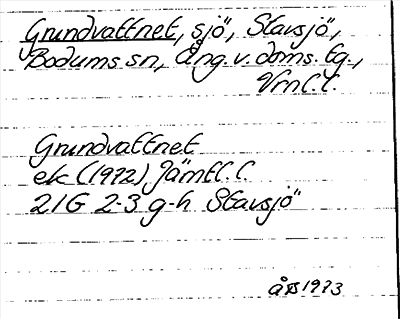 Grundvattnet, sjö, Stavsjö,
Bodums sn, Ång. v. doms. tg.,
Vrnl. l.
Grundvattnet
ek (1972) Jämtl. l.
21G 2-3 g-h Stavsjö
åB 1973